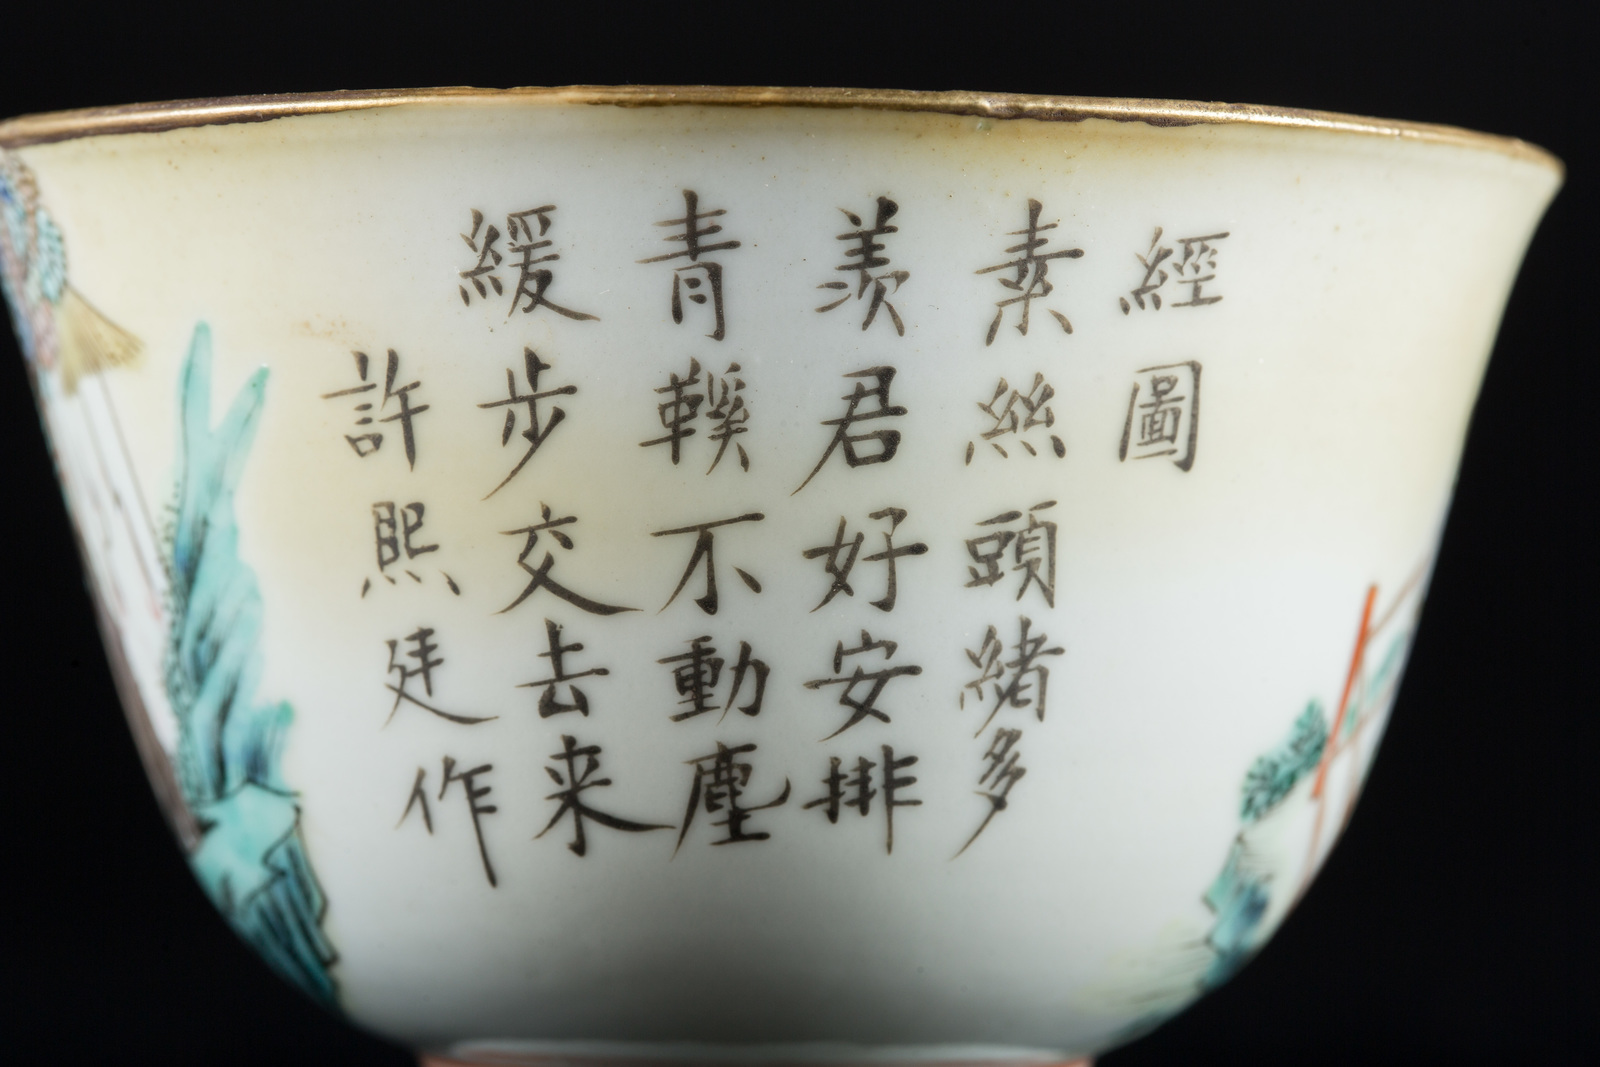 經圖
素絲頭緒多
羨君好安排
青鞵不動塵
緩步交去来
許熙廷作